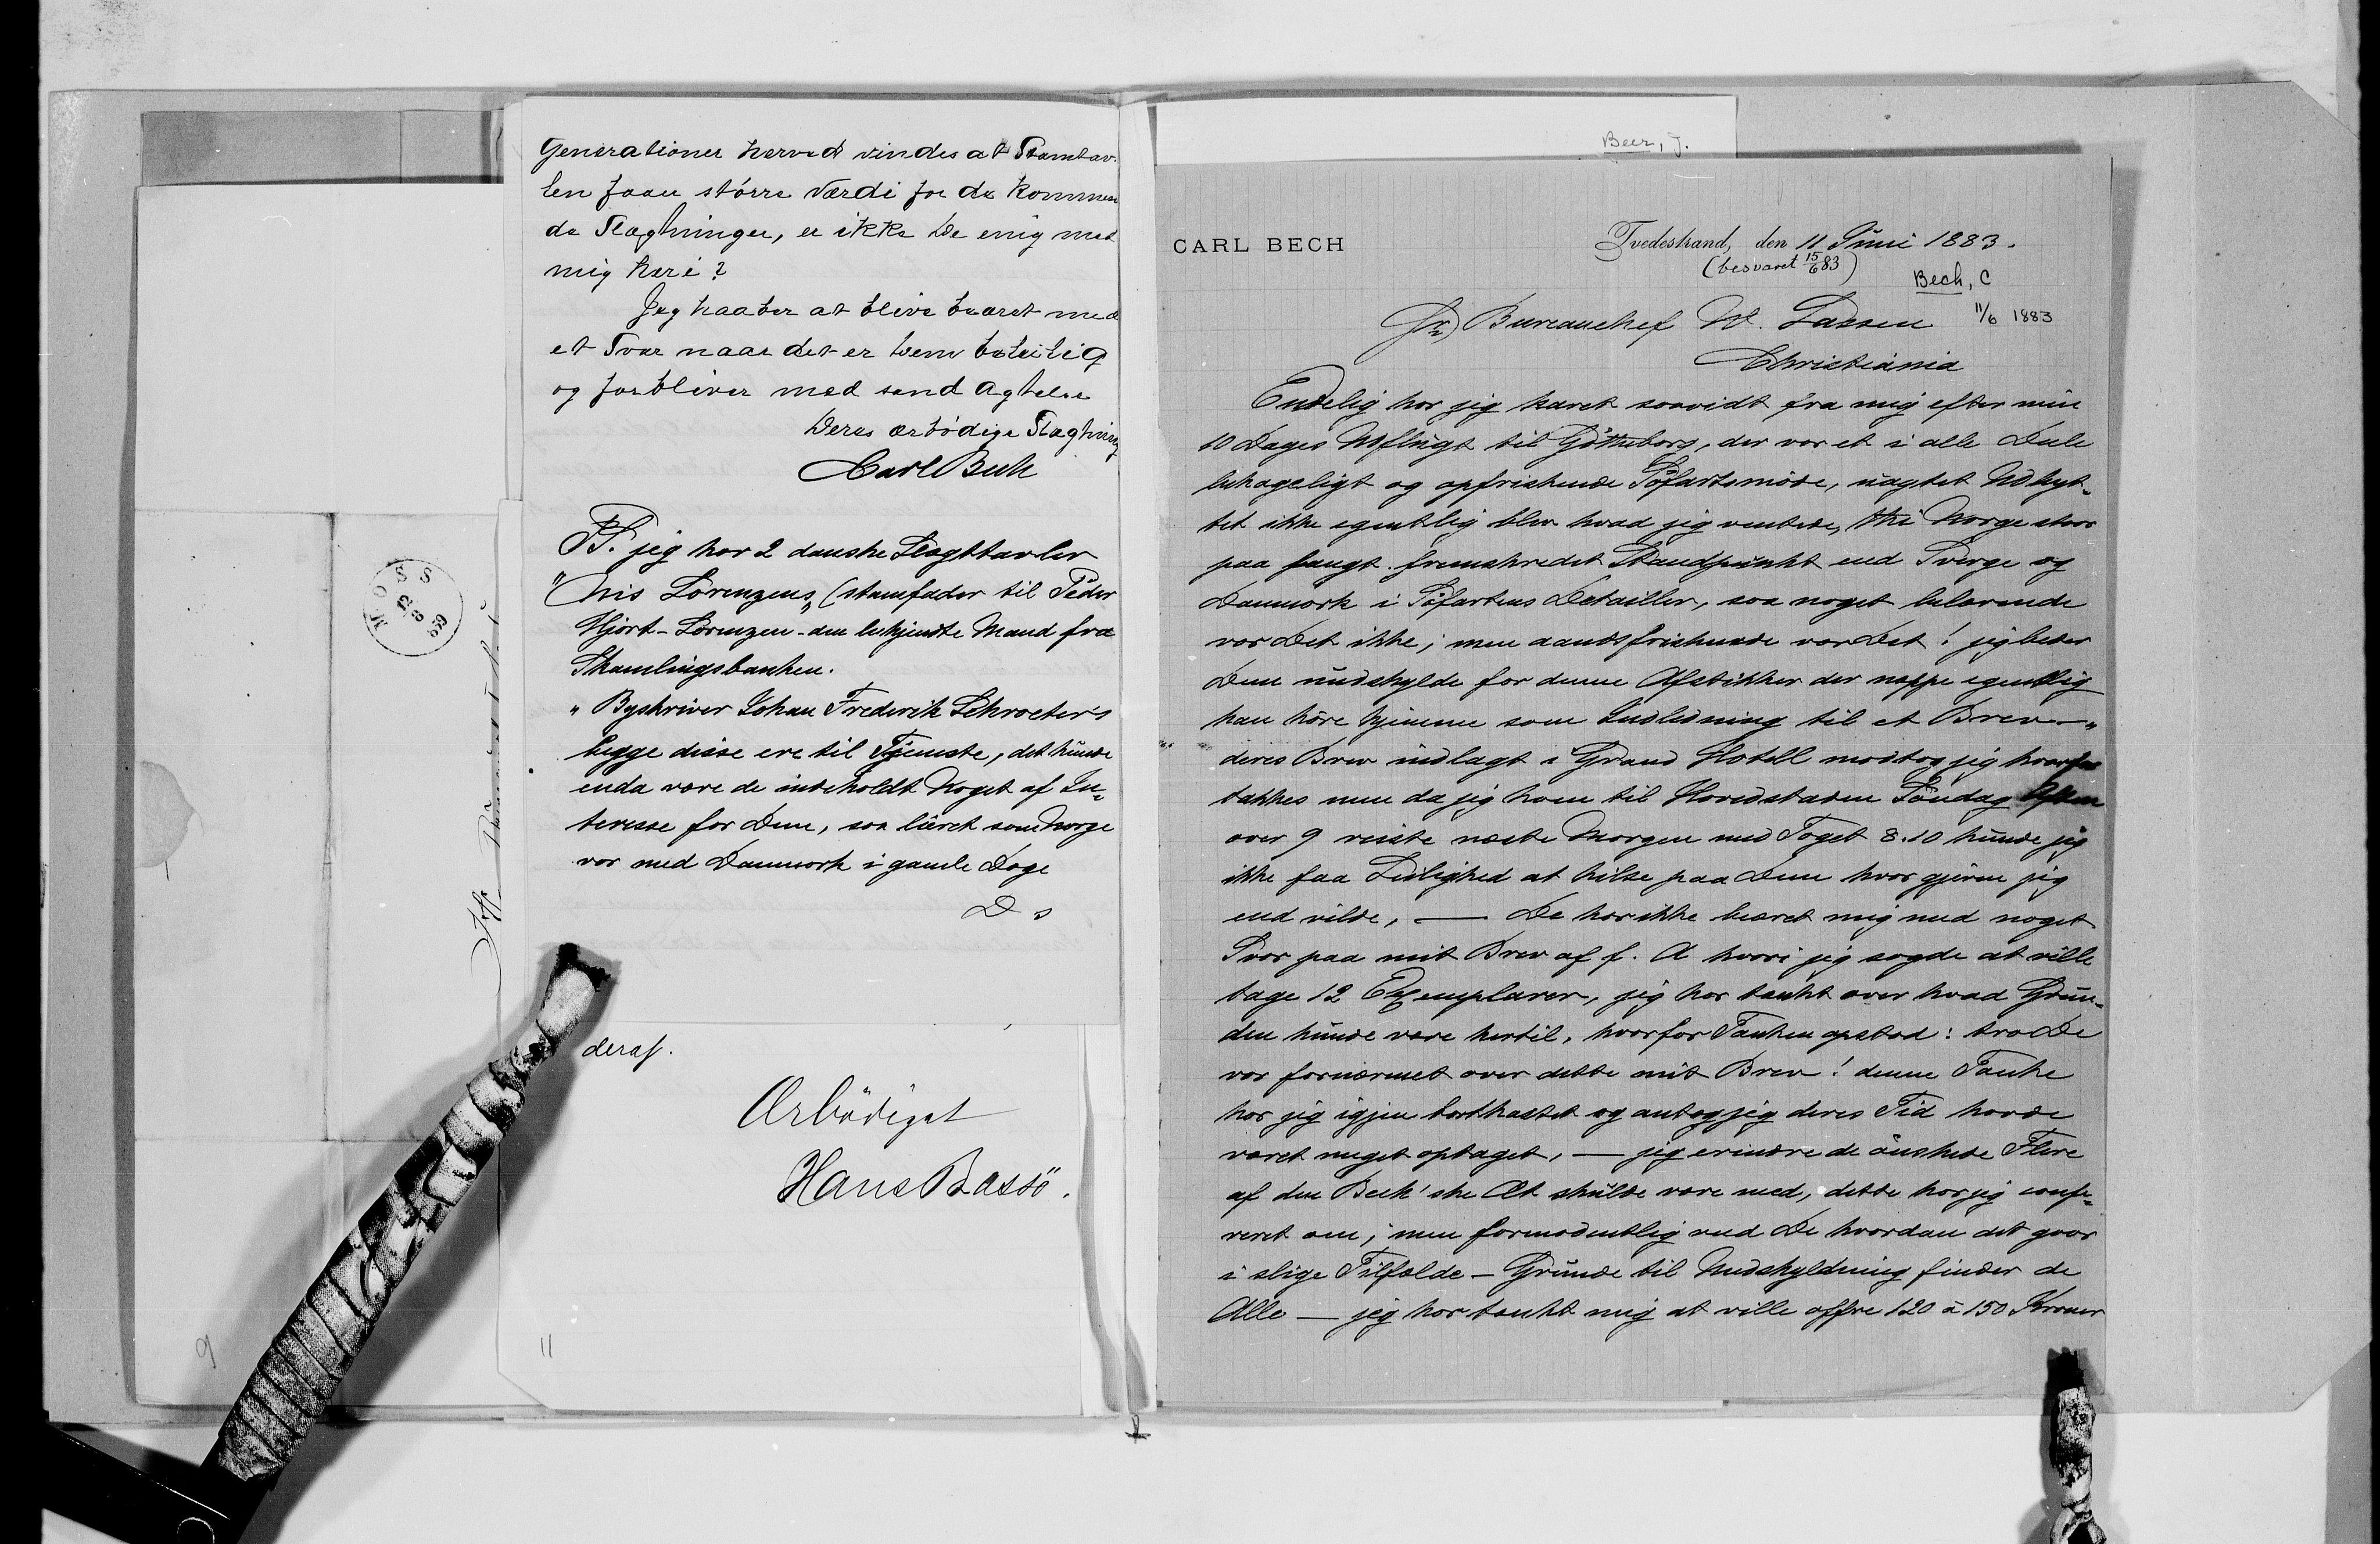 Generationer herved vindes at Stamtav-
len faaer större Værdi for de kommen
de Slægtninger, er ikke De enig med
mig heri?
Jeg haaber at blive bæret med
et Svar naar det er Dem beleilig
og forbliver med sand Agtelse
Deres ærbödige Slægtning
Carl Bech
PS. jeg har 2 danske Slægttavler
"Nis Lorenzens" (stamfader til Peder
Hjort-Lorenzen - den bekjendte Mand fra
Skamlingsbanken.
"Byskriver Johan Frederik Schroeter's
begge disse ere til Tjeneste, det kunde
enda være de indeholdt Noget af In-
teresse for Dem, saa lieret som Norge
var med Danmark i gamle Dage
D s
deraf.
Ærbödigst
Hans Bassö.
11
9
MOSS
Beer, J.
CARL BECH
Tvedestrand, den 11 Juni 1883.
(besvaret 15/6 83)
Bech, C
11/6 1883
Hr Bureauchef W. Lassen
Christiania
Endelig har jeg summet saavidt fra mig efter min
10 Dages Udflugt til Götheborg, der var et i alle Dele
behageligt og opfriskende Söfartsmöde, uagtet Udbyt-
tet ikke egentlig blev hvad jeg ventede, thi Norge staar
paa langt fremskredet Standpunkt end Sverge og
Danmark i Söfartens Detailler, saa noget belærende
var Det ikke; men aandsfriskende var Det! jeg beder
Dem undskylde for denne Afstikker der neppe egentlig
kan höre hjemme som Indledning til et Brev —„
deres Brev indlagt i Grand Hotell modtog jeg hvorfor
takkes men da jeg kom til Hovedstaden Söndag Aften
over 9 reiste næste Morgen med Toget 8.10 kunde jeg
ikke faa Leilighed at hilse paa Dem hvor gjerne jeg
end vilde, — De har ikke beæret mig med noget
Svar paa mit Brev af f. A hvori jeg sagde at ville
tage 12 Exemplarer, jeg har tænkt over hvad Grun-
den kunde være hertil, hvorfor Tanken opstod: tro De
var fornærmet over dette mit Brev! denne Tanke
har jeg igjen bortkastet og antog jeg deres Tid havde
været meget optaget, — jeg erindre de önskede Flere
af den Bech'ske Æt skulde være med, dette har jeg confe-
reret om; men formodentlig ved De hvordan det gaar
i slige Tilfælde — Grunde til Undskyldning finder de
Alle — jeg har tænkt mig at ville offre 120 à 150 Kroner